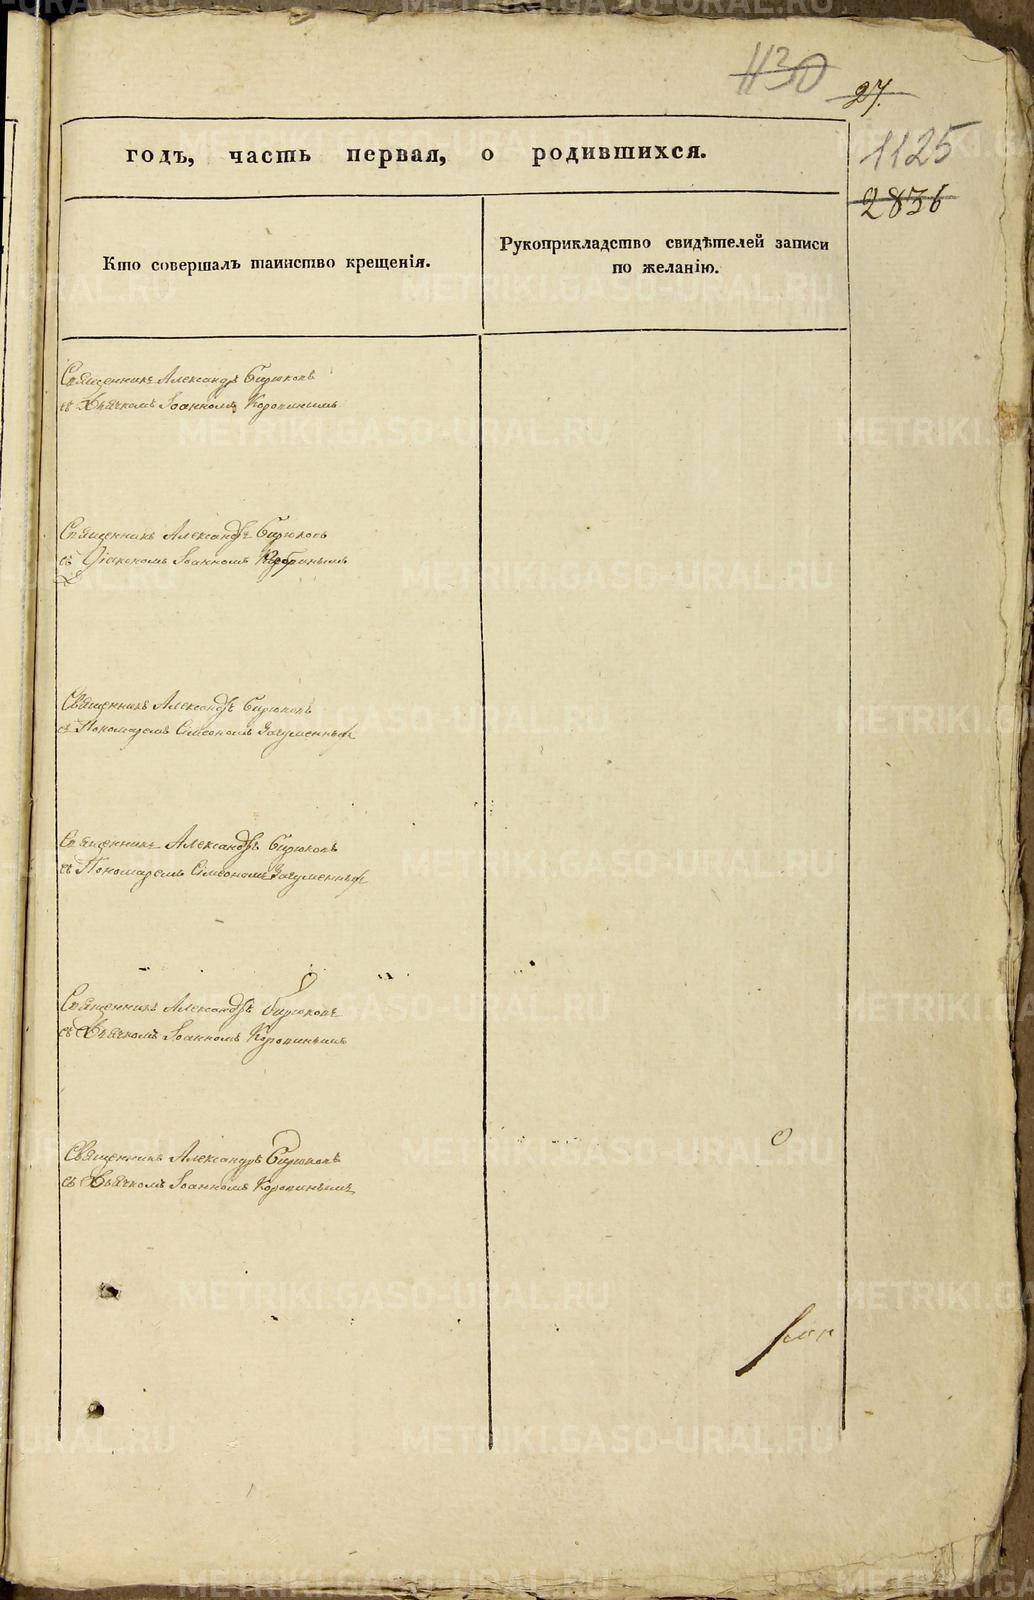 1130
27.
годъ, часть первая, о родившихся.
1125
2836
Кто совершалъ таинство крещенія.
Рукоприкладство свидѣтелей записи
по желанію.
Священникъ Александръ Бирюковъ
съ Дьячкомъ Іоанномъ Коровинымъ
Священникъ Александръ Бирюковъ
съ Діакономъ Іоанномъ
Священникъ Александръ Бирюковъ
съ Пономаремъ Сімеономъ
Священникъ Александръ Бирюковъ
съ Пономаремъ Сімеономъ
Священникъ Александръ Бирюковъ
съ Дьячкомъ Іоанномъ Коровинымъ
Священникъ Александръ Бирюковъ
съ Дьячкомъ Іоанномъ Коровинымъ
METRIKI.GASO-URAL.RU